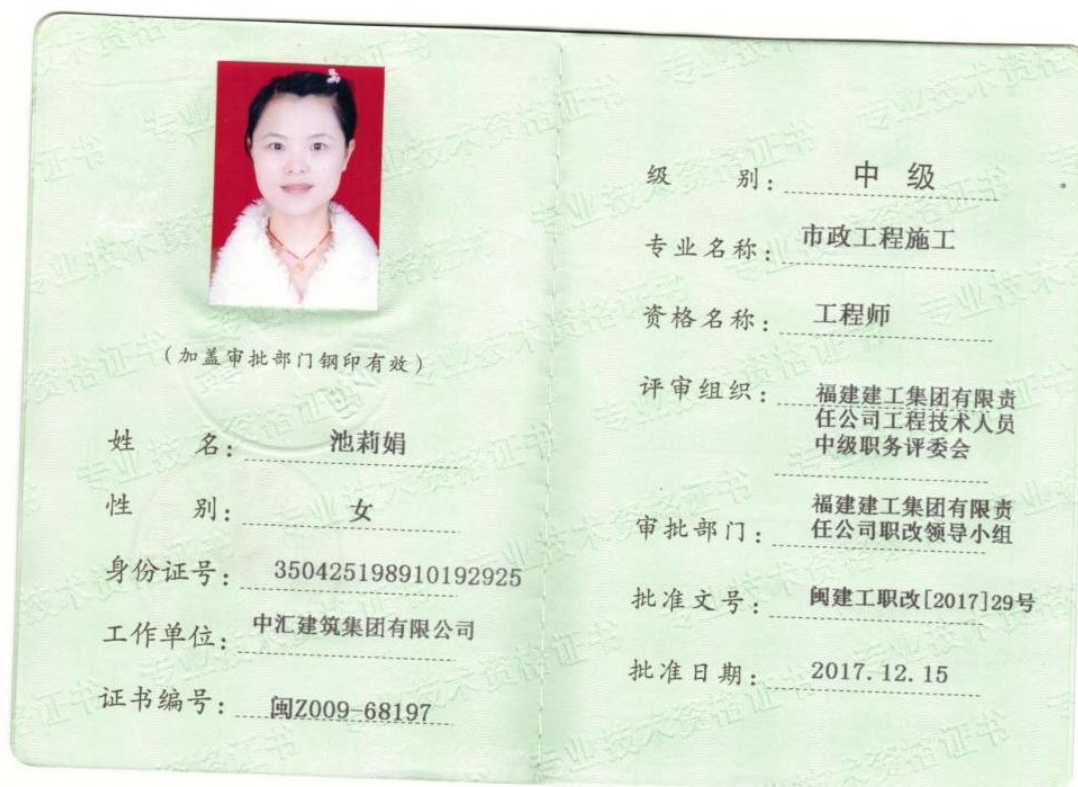 (加盖审批部门钢印有效)
姓 名: 池莉娟
性 别: 女
身份证号: 350425198910192925
工作单位: 中汇建筑集团有限公司
证书编号: 闽Z009-68197
级 别: 中 级
专业名称: 市政工程施工
资格名称: 工程师
评审组织: 福建建工集团有限责
任公司工程技术人员
中级职务评委会
审批部门: 福建建工集团有限责
任公司职改领导小组
批准文号: 闽建工职改[2017]29号
批准日期: 2017.12.15
专业技术资格证书